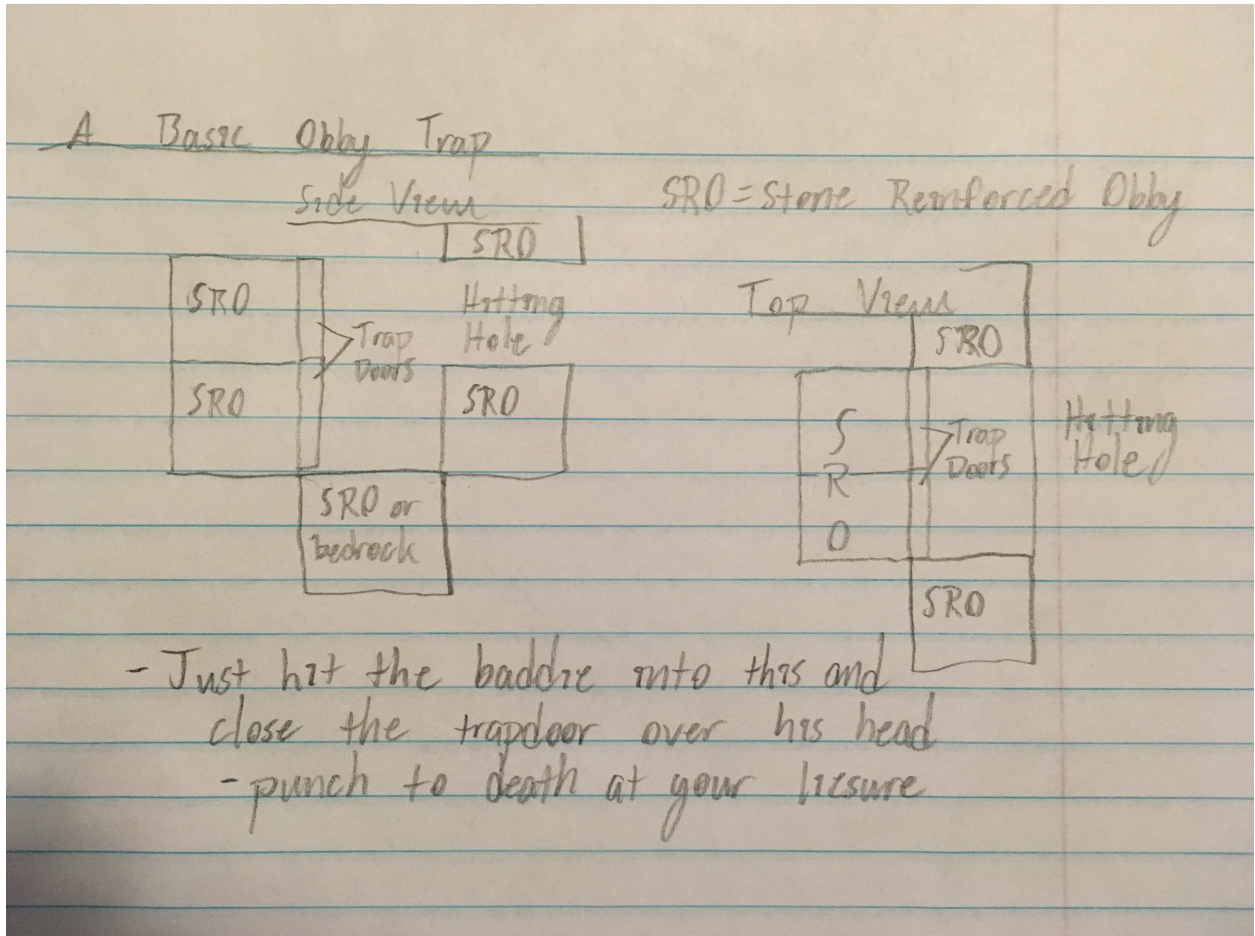 A Basic Obby Trap
Side View
SRO = Stone Reinforced Obby
SRO
SRO
Hitting
Hole
Trap
Doors
SRO
SRO
SRO or
bedrock
Top View
SRO
S
R
O
Trap
Doors
Hitting
Hole
SRO
- Just hit the baddie into this and
close the trapdoor over his head
- punch to death at your liesure